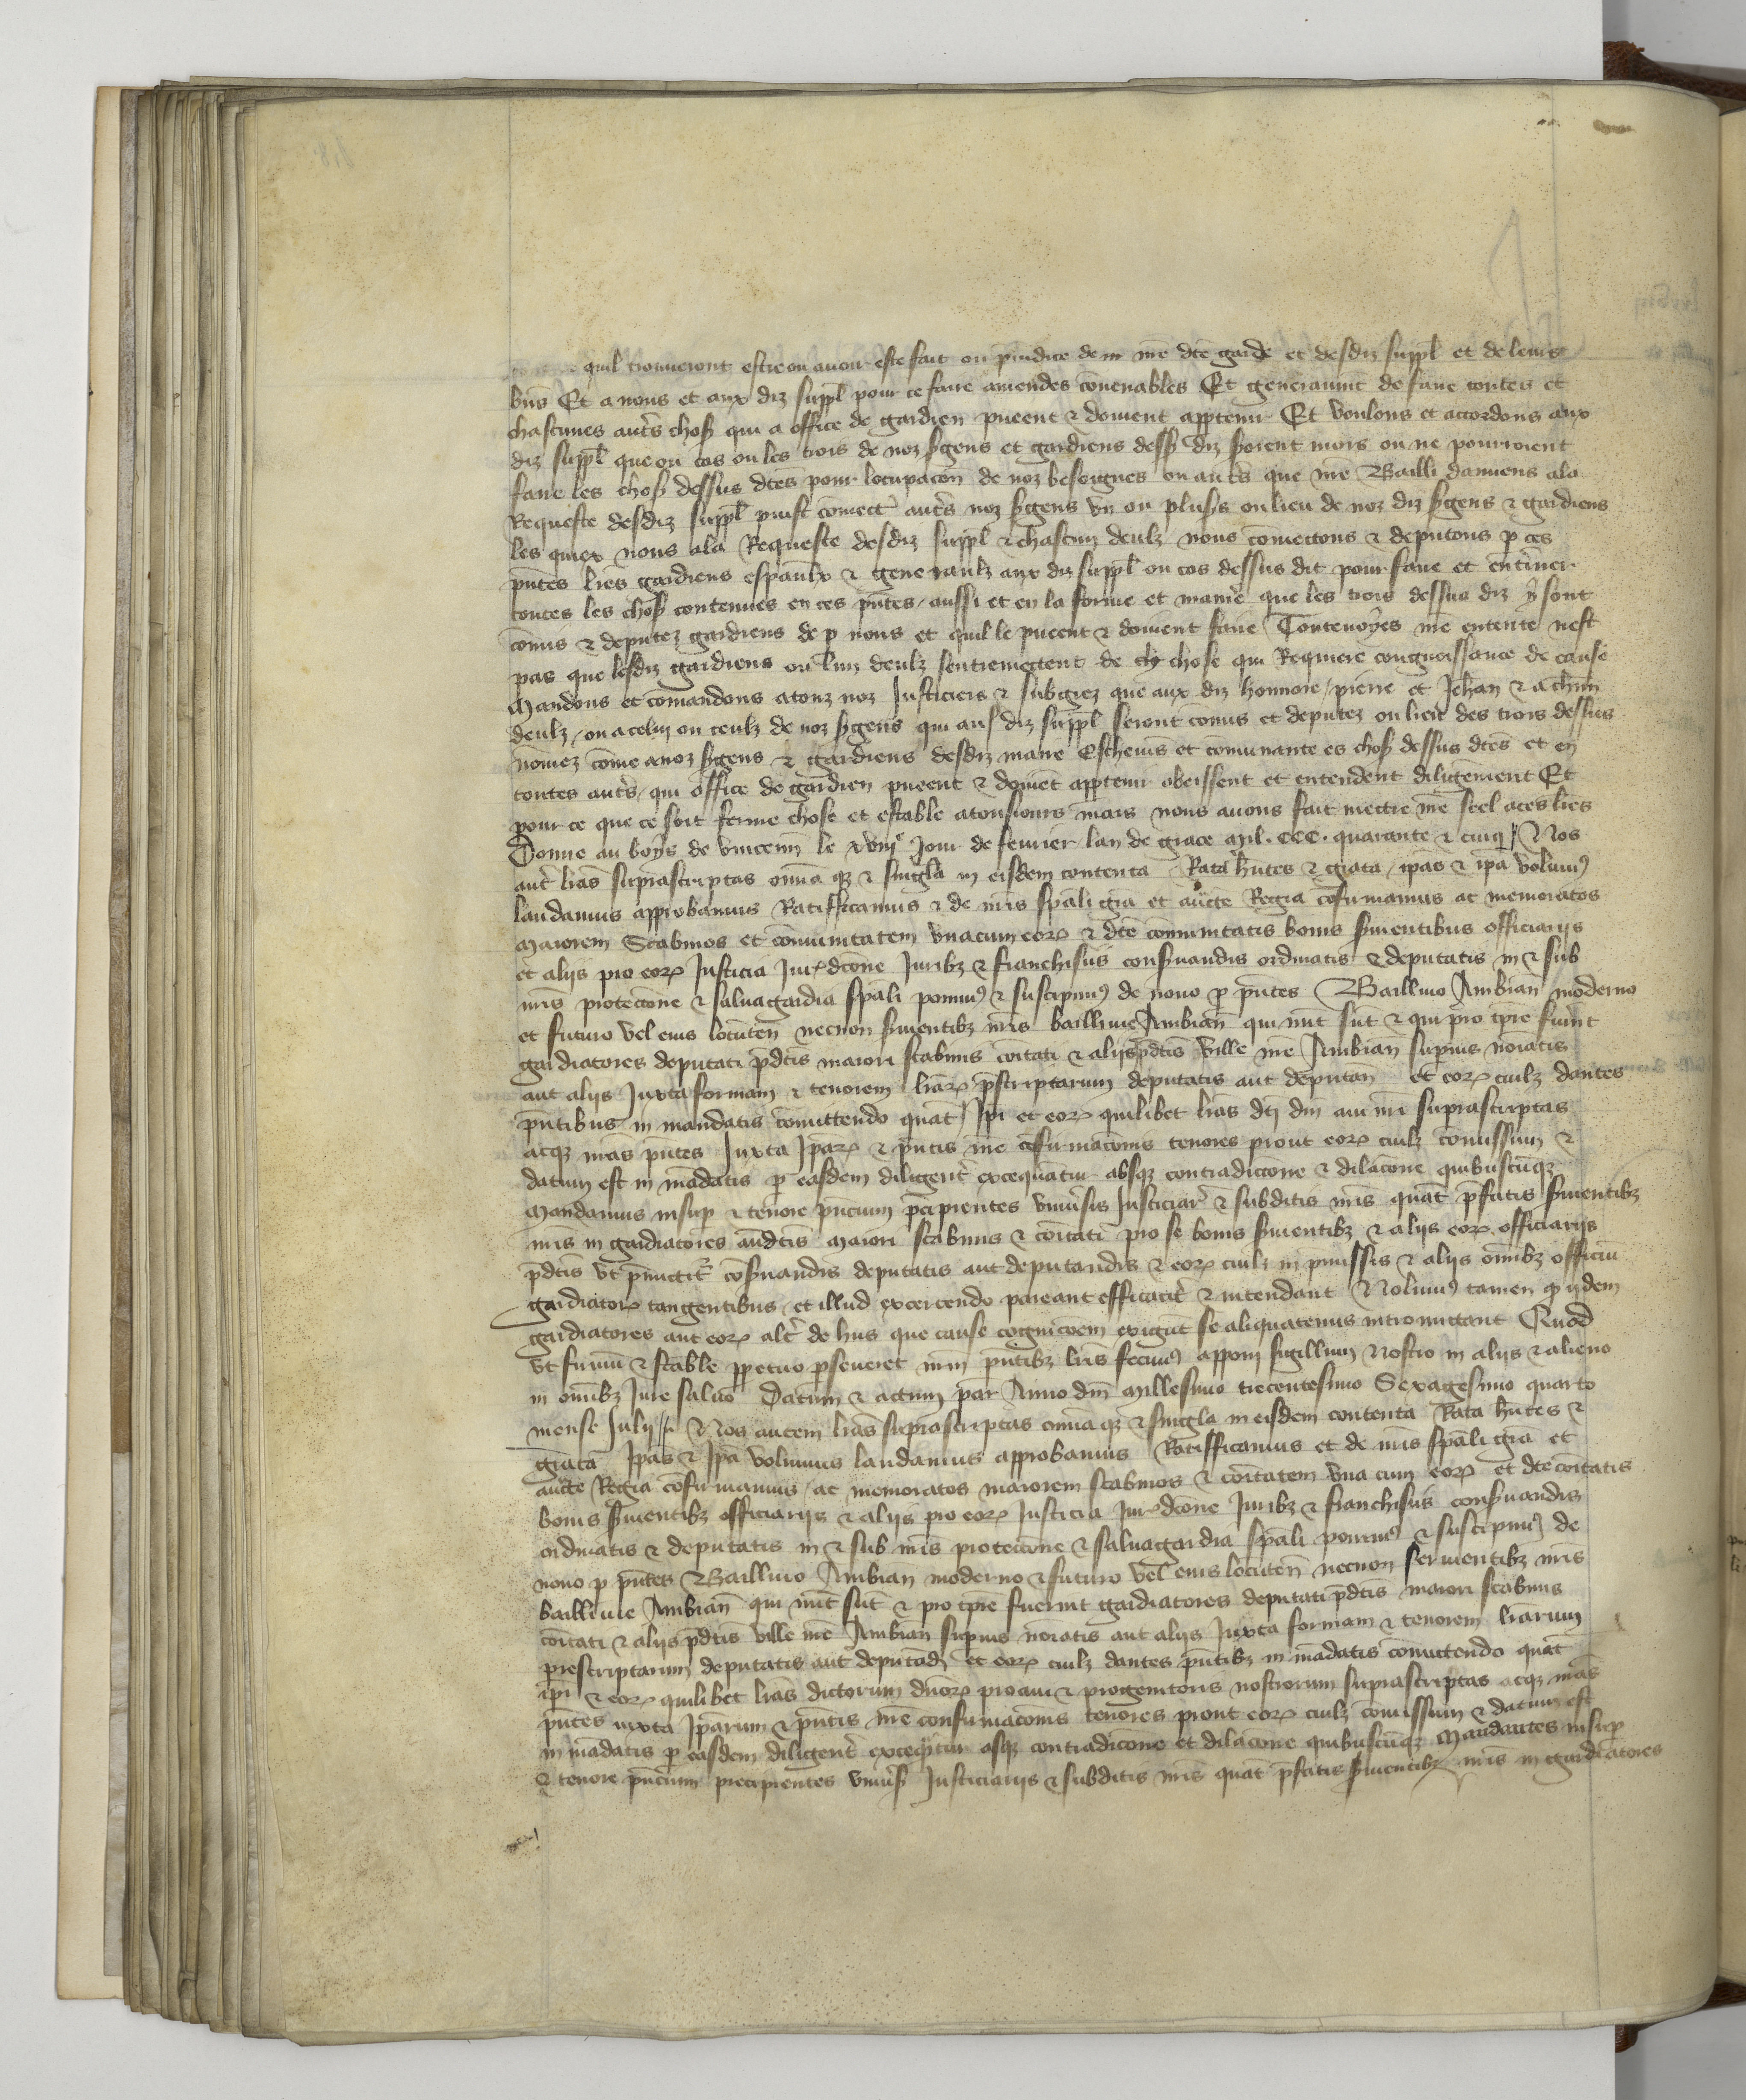 quil trouueront estre ou auoir este fait ou preiudice de nre dce garde et desdiz suppl et de leurs
biens Et a nous et aux diz suppl pour ce faire amendes couenables Et generaument de faire toutes et
chascunes autres choses qui a office de gardien pueent & doiuent appartenir Et voulons et accordons aux
diz suppl que ou cas ou les trois de noz sergens et gardiens dess diz seroient mors ou ne pourroient
faire les choses dessus dites pour locupacon de noz besoignes ou autres que nre Bailli damiens ala
Requeste desdiz suppl puist comectre autres noz sergens vn ou plusrs ou lieu de noz diz sergens & gardiens
les quiex nous ala Requeste desdiz suppl & chascun deulz nous comectons & deputons p ces
pntes lres gardiens espaulx & generaulz aux diz suppl ou cas dessus dit pour faire et enteriner
toutes les choses contenues en ces pntes aussi et en la forme et maniere que les trois dessus diz y sont
comis & deputez gardiens de p nous et quil le pueent & doiuent faire Toutevoyes nre entente nest
pas que lesdiz gardiens ou lun deulz sentremectent de chose qui Requiere congnoissance de cause
Mandons et comandons atouz noz Justiciers & subgiez que aux diz honnore pierre et Jehan & a chun
deulz ou a celui ou ceulz de noz sergens qui aus diz suppl seront comis et deputez ou lieu des trois dessus
nomez come a noz sergens & gardiens desdiz maire Escheuins et comunaute es choses dessus dces et en
toutes autres qui office de gardien pueent & doiuet appartenir obeissent et entendent diligenment Et
pour ce que ce soit ferme chose et estable atousiours mais nous auons fait mectre nre scel aces lres
Donne au boys de vincenn le xviije Jour de feurier lan de grace mil CCC quarante & cinq Nos
autem lras suprascriptas omia que & singla in eisdem contenta Rata hntes & grata ipas & ipa volumus
laudamus approbamus Ratifficamus & de nris spali gra et aucte Regia cofirmamus ac memoratos
Maiorem Scabinos et comunitatem vnacum eorum & dce comunitatis bonis seruientibus officiariis
et aliis pro eorum Justicia Jurisdcone Juribz & franchisiis conseruandis ordinatis & deputatis in & sub
nris proteccone & saluagardia spali ponimus & suscipimus de nouo p pntes Baillivo Ambian moderno
et futuro vel eius locutenen necnon seruientibz nris baillivie Ambian qui nunc sut & qui pro tpre fuerint
gardiatores deputati pdctis maiori scabinis coitati & aliis pdctis ville nre Ambian superius noiatis
aut aliis Juxta formam & tenorem lrarum pscriptarum deputatis aut deputan et eorum cuilz dantes
pntibus in mandatis comittendo quat Ipi et eorum quilibet lras dci dni aui nri suprascriptas
acqz nras pntes Juxta Iparum & pntis nre cofirmacois tenores prout eorum cuilz comissum &
datum est in madatis p easdem diligenter exequatur absqz contradiccone & dilacone quibuscuqz
Mandamus insup & tenore pncium pcipientes vniuersis Justiciar & subditis nris quat pfatis seruientibz
nris in gardiatores andctis maiori scabinis & coitati pro se bonis seruientibz & aliis eorum officiariis
pdctis vt pmittitr coseruandis deputatis aut deputandis & eorum cuilz in pmissis & aliis omibz officiu
gardiatorum tangentibus et illud excercendo pareant efficaciter & intendant Nolumus tamen qp ijdem
gardiatores aut eorum alter de hiis que cause cognicoem exigut se aliquatenus intromittant Quod
vt firmu & stabile ppetuo pseueret nrm pntibz lris fecimus apponi sigillum Nostro in aliis & alieno
in omibz Jure saluo Datum & actum par Anno dni Millesimo trecentesimo Sexagesimo quarto
mense Julii Nos autem lras suprascriptas omia qz & singla in eisdem contenta Rata hntes &
grata Ipas & Ipa volumus laudamus approbamus Ratifficamus et de nris spali gra et
aucte Regia cofirmamus ac memoratos maiorem scabinos & coitatem vna cum eorum et dce coitatis
bonis seruientibz officiariis & aliis pro eorum Justicia Jurisdcone Juribz & franchisiis conseruandis
ordinatis & deputatis in & sub nris proteccone & saluagardia spali ponimus & suscipimus de
nouo p pntes Baillivo Ambian moderno & futuro vel eius locutenen necnon seruientibz nris
baillivie Ambian qui nunc sut & pro tpre fuerint gardiatores deputati pdctis maiori scabinis
coitati & aliis pdctis ville nre Ambian superius noiatis aut aliis Juxta formam & tenorem lrarum
prescriptarum deputatis aut deputad et eorum cuilz dantes pntibz in madatis comittendo quat
ipi & eorum quilibet lras dictorum dnorum proaui & progenitoris nostrorum suprascriptas acqz nras
pntes iuxta Iparum & pntis nre confirmacois tenores prout eorum cuilz comissum & datum est
in madatis p easdem diligenter excequtur asqz contradiccone et dilacone quibuscuqz Mandantes insup
& tenore pncium precipientes vniuers Justiciariis & subditis nris quat pfatis seruientibz nris in gardiatores